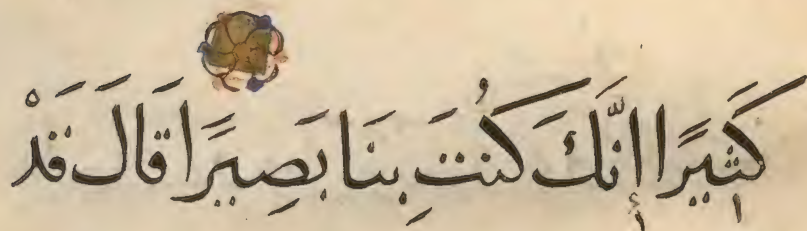 كَثِيرًا إِنَّكَ كُنتَ بِنَا بَصِيرًا قَالَ قَدْ